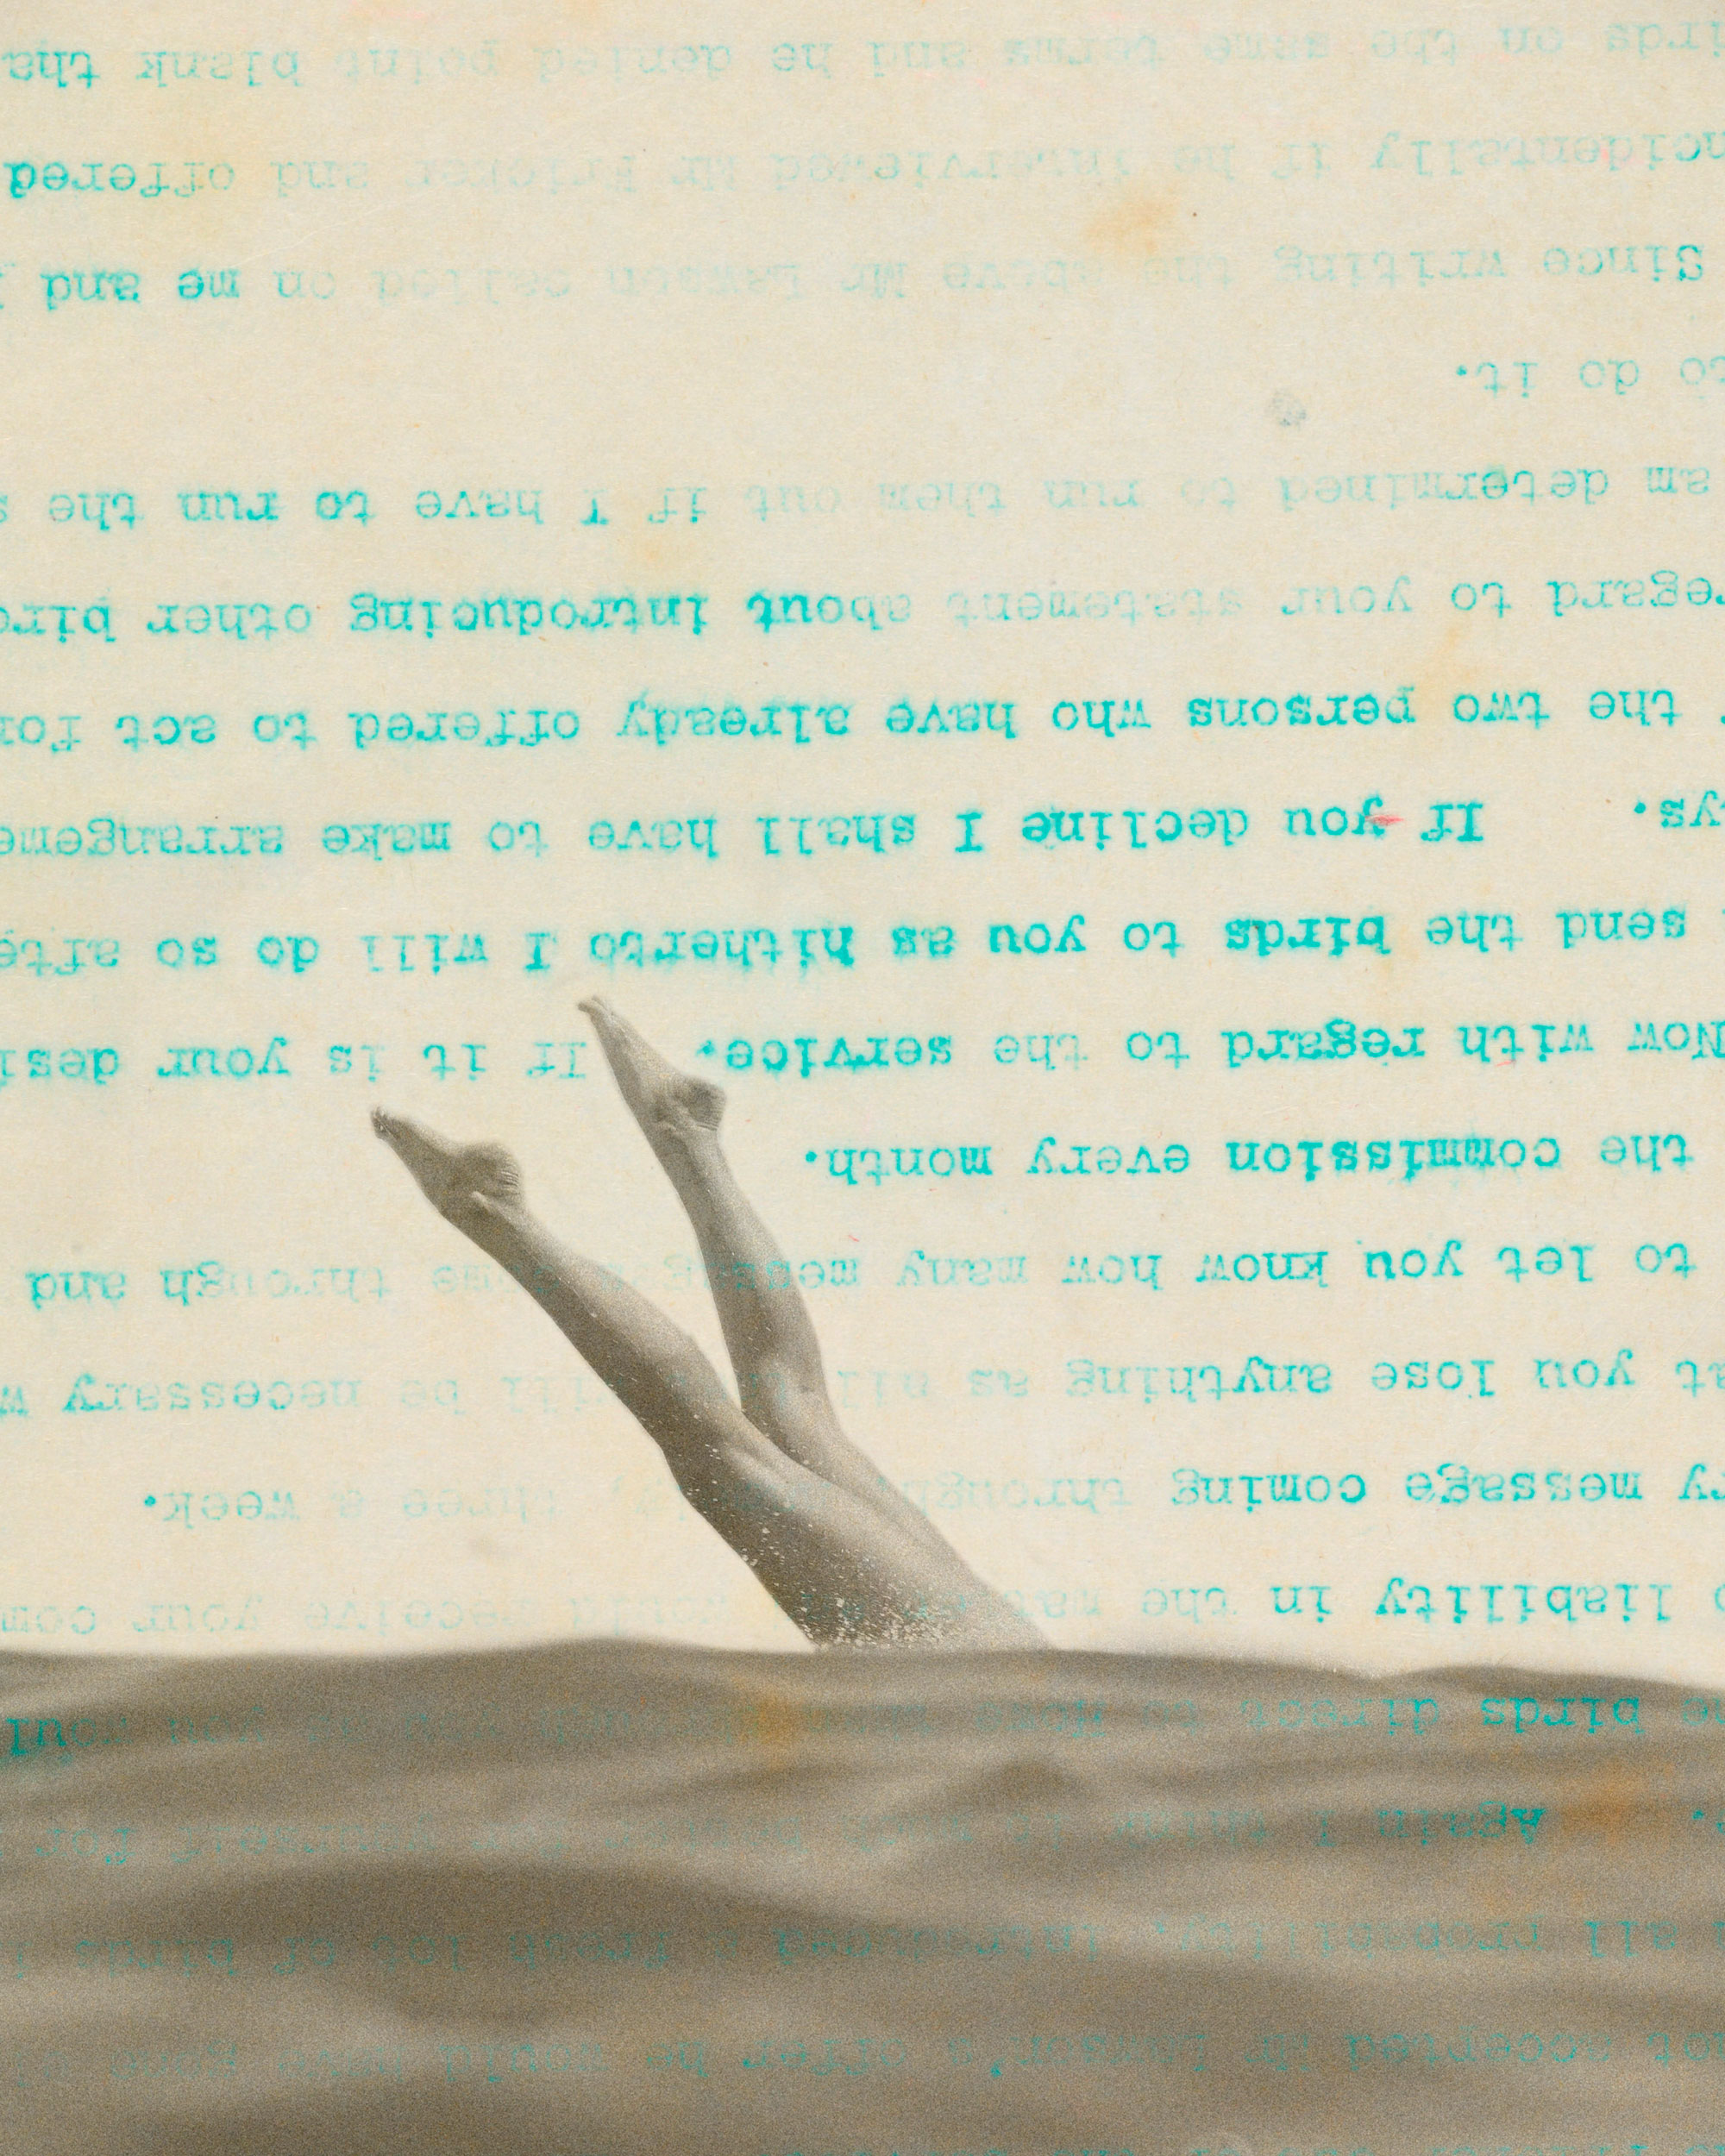 not accepted Mr Lawson's offer he would have gone
all probability, introduced a fresh lot of birds
Again I think it much better for yourself for
birds direct to you as you would
liability in the receive your com
ry message coming through three a week.
at you lose anything as all will be necessary w
to let you know how many me through and
the commission every month.
Now with regard to the service. If it is your desi
send the birds to you as hitherto I will do so afte
ys. If you decline I shall have to make arrangeme
the two persons who have already offered to act for
regard to your statement about introducing other bird
am determined to run them out if I have to run the s
to do it.
Since writing the above Mr Lawson called on me and
ncidentally if he interviewed Mr Fricker and offered
irds on the same terms and he denied point blank tha